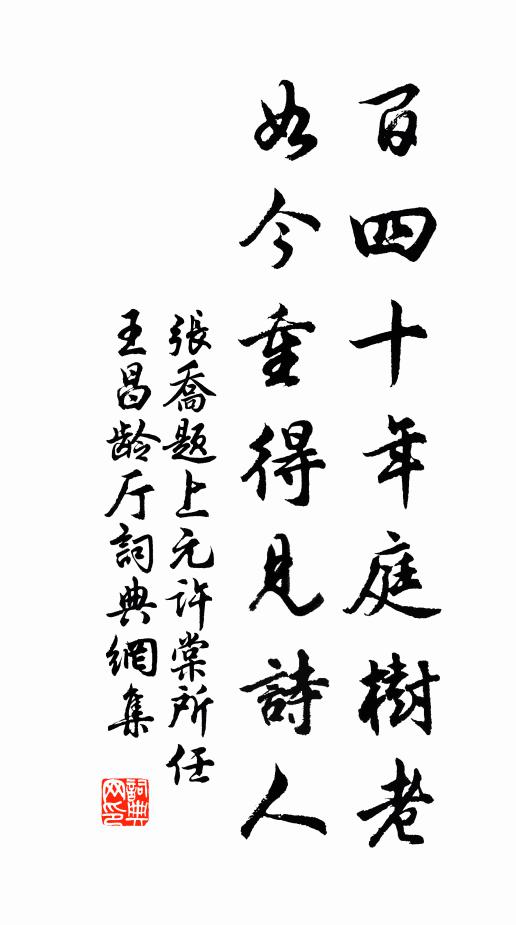 百四十年庭樹老
如今重得見詩人
張喬题上元许棠所任
王昌龄厅詞典網集
詞典网印